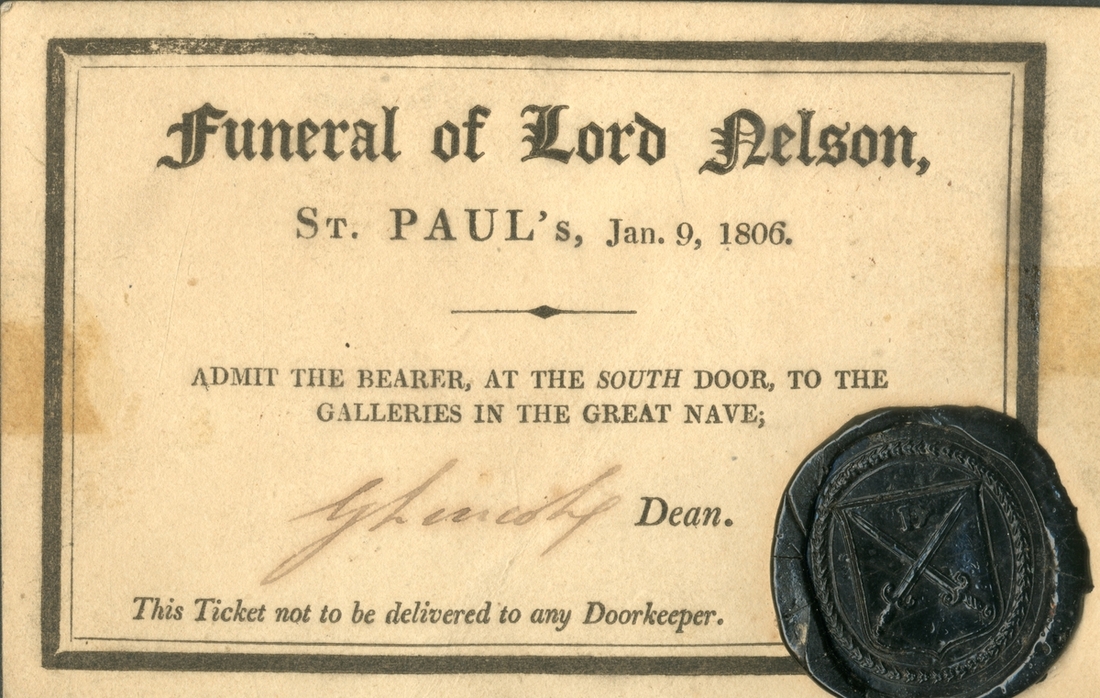 Funeral of Lord Nelson,
ST. PAUL's, Jan. 9, 1806.
ADMIT THE BEARER, AT THE SOUTH DOOR, TO THE
GALLERIES IN THE GREAT NAVE;
G Lincoln Dean.
This Ticket not to be delivered to any Doorkeeper.